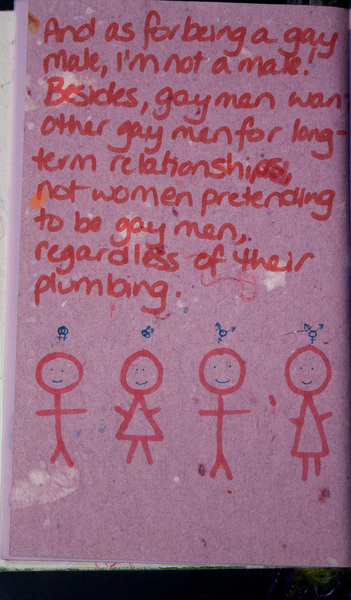 And as for being a gay
male, i'm not a male!
Besides, gay men wan
other gay men for long-
term relationships,
not women pretending
to be gay men,
regardless of their
plumbing.